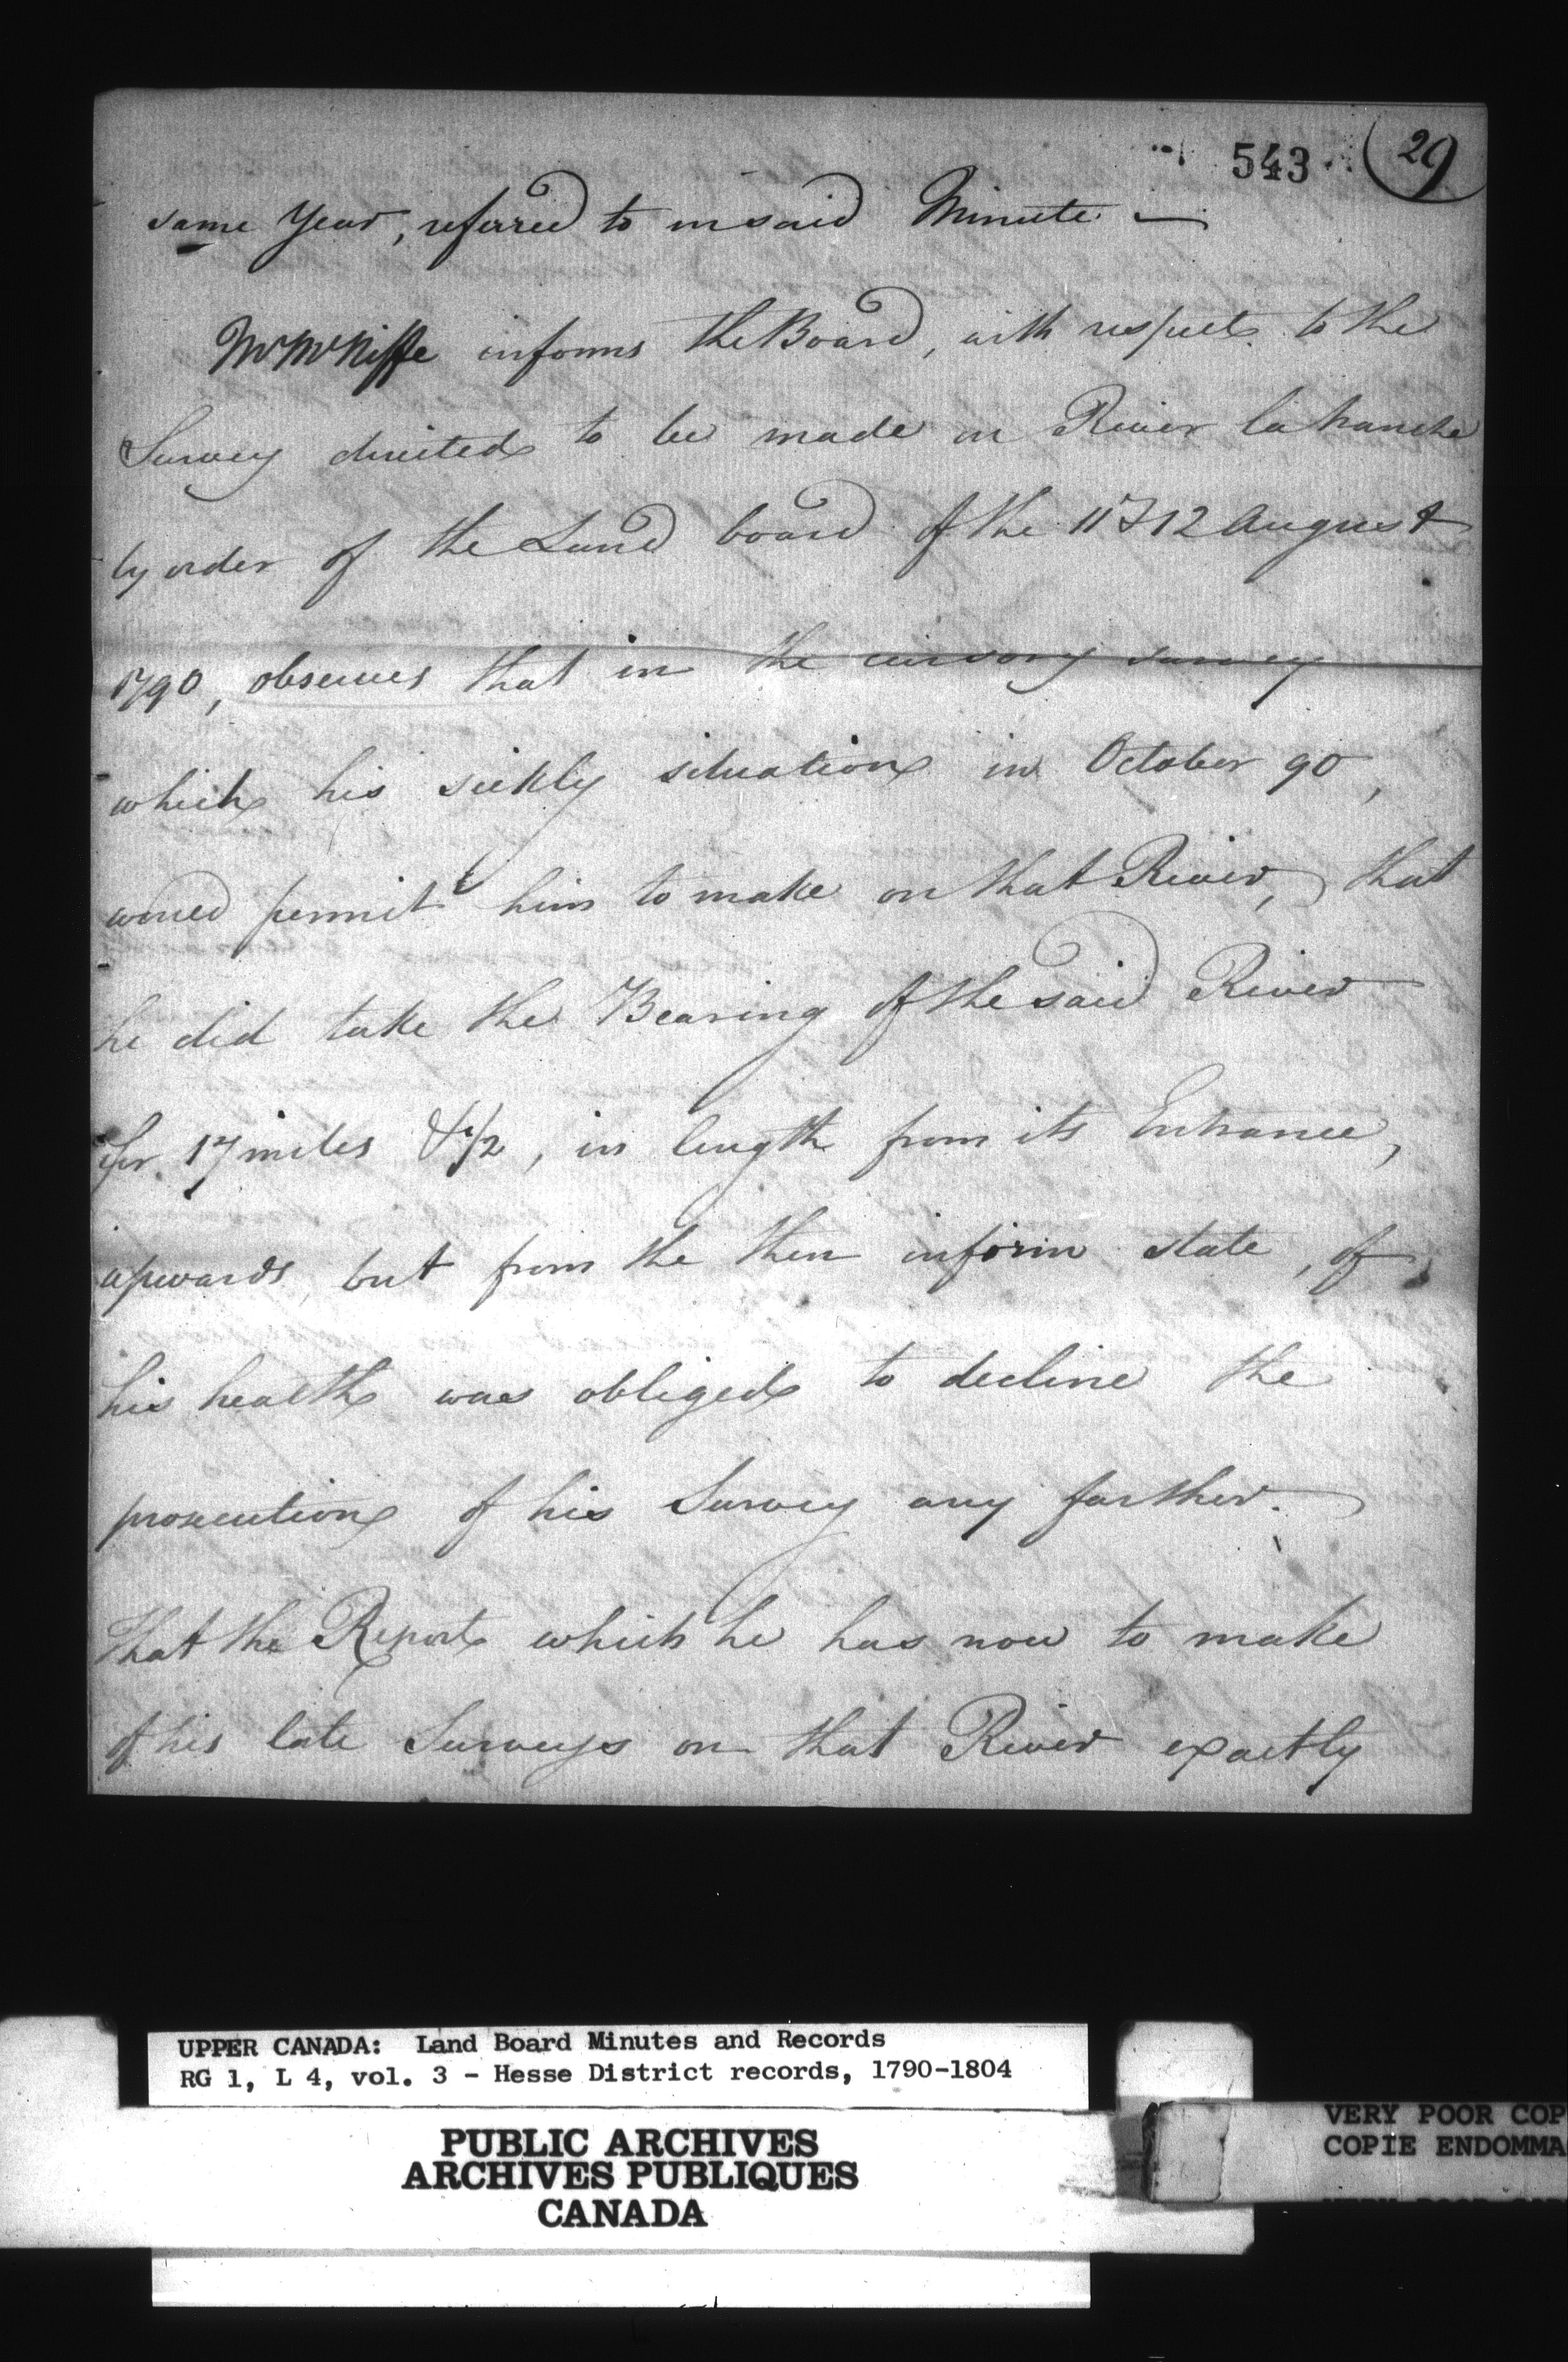 543 29
same Year, referred to in said Minute. —
Mr McNiffe informs the Board, with respect to the
Survey directed to be made on River la tranche
by order of the Land board of the 11 & 12 August
1790, observes that in the cursory survey
which his sickly situation in October 90,
would permit him to make on that River, that
he did take the Bearing of the said River
for 17 miles & 1/2, in length from its Entrance,
upwards, but from the then infirm state, of
his health was obliged to decline the
prosecution of his Survey any farther.
That the Report which he has now to make
of his late Surveys on that River exactly
UPPER CANADA: Land Board Minutes and Records
RG 1, L 4, vol. 3 - Hesse District records, 1790-1804
PUBLIC ARCHIVES
ARCHIVES PUBLIQUES
CANADA
VERY POOR COP
COPIE ENDOMMA